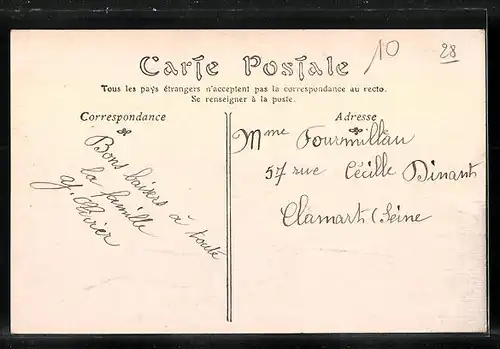 10
28
Carte Postale
Tous les pays étrangers n'acceptent pas la correspondance au recto.
Se renseigner à la poste.
Correspondance
Bons baisers à toute
la famille
Y. Poirier
Adresse
Mme Fourmillau
57 rue Cécille Dinant
Clamart (Seine